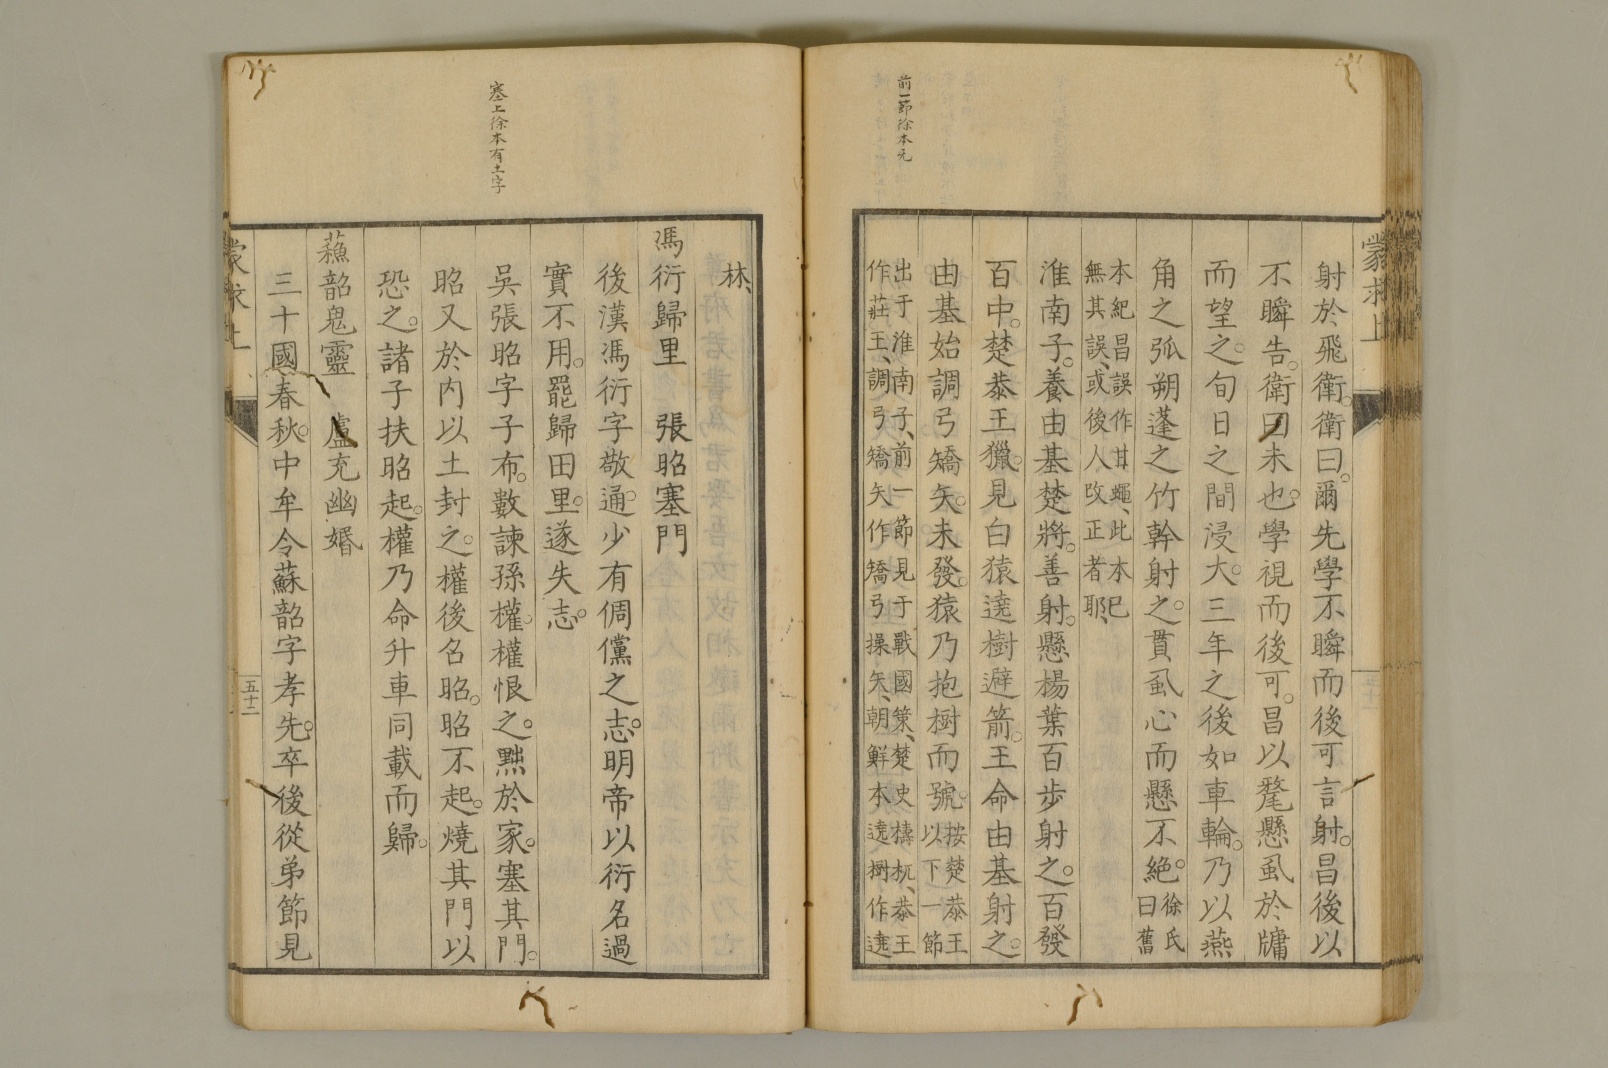 前一節徐本无
蒙求上
射於飛衛。衛曰。爾先學不瞬而後可言射。昌後以
不瞬告。衛曰未也。學視而後可。昌以氂懸虱於牗
而望之。旬日之間浸大。三年之後如車輪。乃以燕
角之弧朔蓬之竹幹射之。貫虱心而懸不絶。徐氏曰舊
本紀昌誤作甘蠅、此本已
無其誤、或後人改正者耶、
淮南子。養由基楚將。善射。懸楊葉百步射之。百發
百中。楚恭王獵。見白猿遶樹避箭。王命由基射之。
由基始調弓矯矢。未發。猿乃抱樹而號。按楚恭王以下一節
出于淮南子、前一節見于戰國策、楚史檮杌、恭王
作莊王、調弓矯矢作矯弓操矢、朝鮮本遶樹作遶
塞上徐本有土字
林、
馮衍歸里　張昭塞門
後漢馮衍字敬通。少有倜儻之志。明帝以衍名過
實不用。罷歸田里。遂失志。
吳張昭字子布。數諫孫權。權恨之。黜於家。塞其門。
昭又於内以土封之。權後名昭。昭不起。燒其門以
恐之。諸子扶昭起。權乃命升車同載而歸。
蘓韶鬼靈　盧充幽婚
三十國春秋。中牟令蘇韶字孝先。卒後從弟節見
五十二